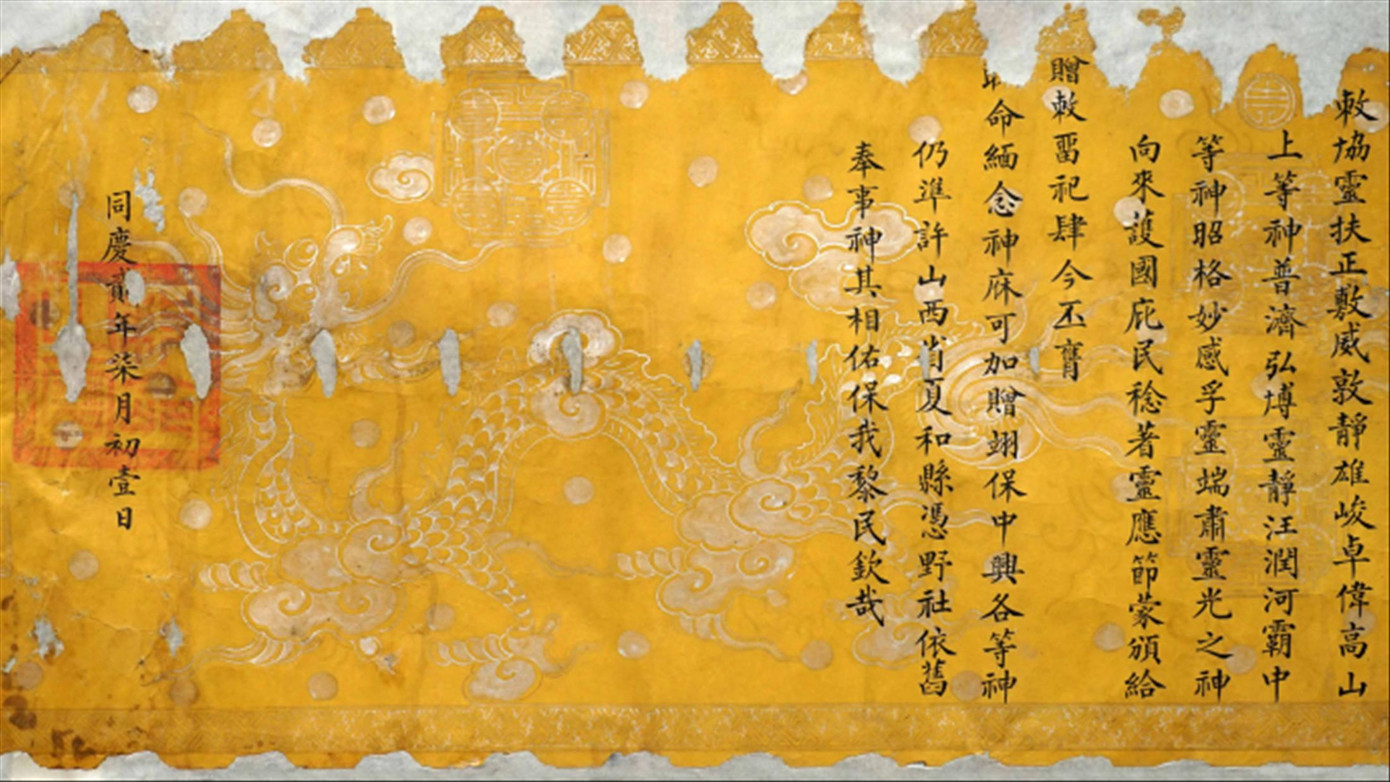 敕協靈扶正敷威敦靜雄峻卓偉高山
上等神普濟弘博靈靜汪潤河霸中
等神昭格妙感孚靈端肅靈光之神
向來護國庇民稔著靈應節蒙頒給
贈敕畱祀肆今丕膺
命緬念神庥可加贈翊保中興各等神
仍準許山西省夏和縣憑野社依舊
奉事神其相佑保我黎民欽哉
同慶貳年柒月初壹日